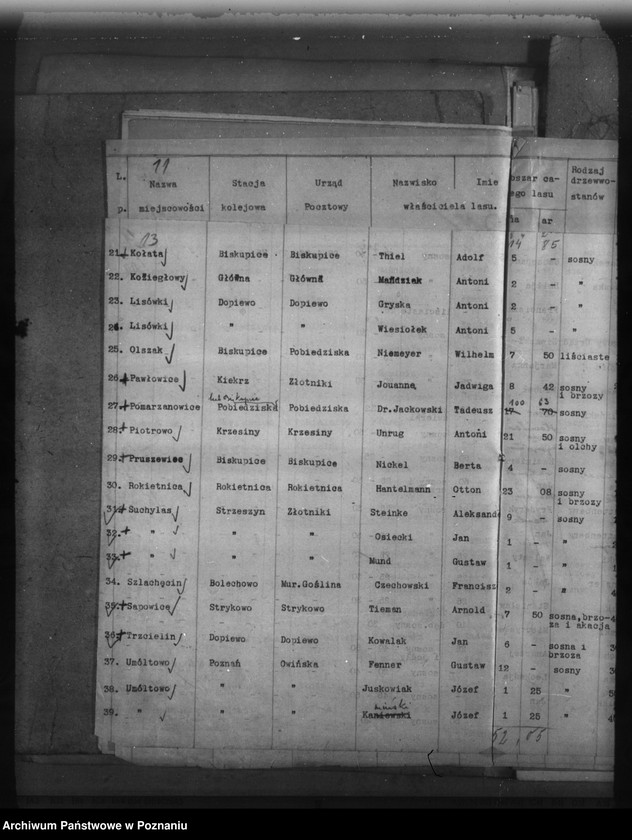 11
L. p. Nazwa miejscowości Stacja kolejowa Urząd Pocztowy Nazwisko Imię właściciela lasu. obszar ca- ego lasu ha ar Rodzaj drzewwo- stanów
13 14 85
21. Kołata Biskupice Biskupice Thiel Adolf 5 - sosny
22. Koziegłowy Główna Główna Antoni 2 - "
23. Lisówki Dopiewo Dopiewo Gryska Antoni 2 - "
24. Lisówki " " Wiesiołek Antoni 5 - "
25. Olszak Biskupice Pobiedziska Niemeyer Wilhelm 7 50 liściaste
26. Pawłowice Kiekrz Złotniki Jouanne Jadwiga 8 42 sosny i brzozy
100 63
27. Pomarzanowice Pobiedziska Pobiedziska Dr.Jackowski Tadeusz 17 70 sosny
28. Piotrowo Krzesiny Krzesiny Unrug Antoni 21 50 sosny i olchy
29. Pruszewiec Biskupice Biskupice Nickel Berta 4 - sosny
30. Rokietnica Rokietnica Rokietnica Hantelmann Otton 23 08 sosny i brzozy
31. Suchylas Strzeszyn Złotniki Steinke Aleksand 9 - sosny
32. " " " Osiecki Jan 1 - "
33. " " " Mund Gustaw 1 - "
34. Szlachęcin Bolechowo Mur.Goślina Czechowski Francisz 2 - "
35. Sapowice Strykowo Strykowo Tieman Arnold 7 50 sosna,brzo- za i akacja
36. Trzcielin Dopiewo Dopiewo Kowalak Jan 6 - sosna i brzoza
37. Umółtowo Poznań Owińska Fenner Gustaw 12 - sosny
38. Umółtowo " " Juskowiak Józef 1 25 "
39. " " " Kaniewski Józef 1 25 "
52,85
Archiwum Państwowe w Poznaniu